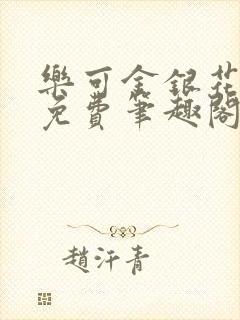 樂可金銀花
免費筆趣閣
趙汗青